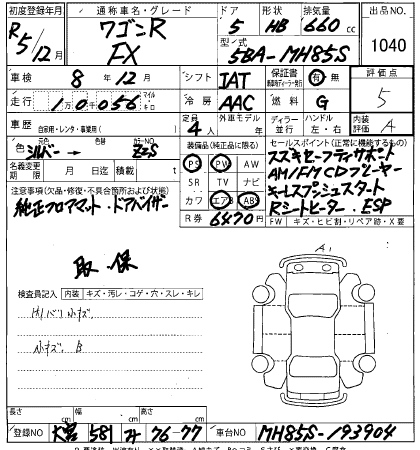 初度登録年月 通称車名・グレード ドア 形状 排気量 出品NO.
R5/12月 ワゴンR FX 5 HB 660cc 1040
型式 5BA-MH85S
車検 8年12月 シフト IAT 保証書 有 無 評価点 5
走行 1万0千056 マイル キロ 冷房 AAC 燃料 G
車歴 自家用・レンタ・事業用( ) 定員 4人 外車モデル 年 ディーラー 並行 ハンドル 左・右 内装 A
色 シルバー → 色替 カラーNO
名義変更期限 月 日 積載 t
装備品(純正品に限る)
PS PW AW
SR TV ナビ
カワ エアB ABS
R券 6470円
セールスポイント(正常に機能するもの)
スズキセーフティサポート
AM/FM CDプレーヤー
キーレスプッシュスタート
Rシートヒーター. ESP
注意事項(欠品・修復・不具合箇所および状態)
純正フロアマット.ドアバイザー
取.保
FW キズ・ヒビ割・リペア跡・X要
検査員記入 内装 キズ・汚レ・コゲ・穴・スレ・キレ
小キズ. B
A1
長さ cm 幅 cm 高さ cm
登録NO 大宮 581 76-77 車台NO MH85S-193904